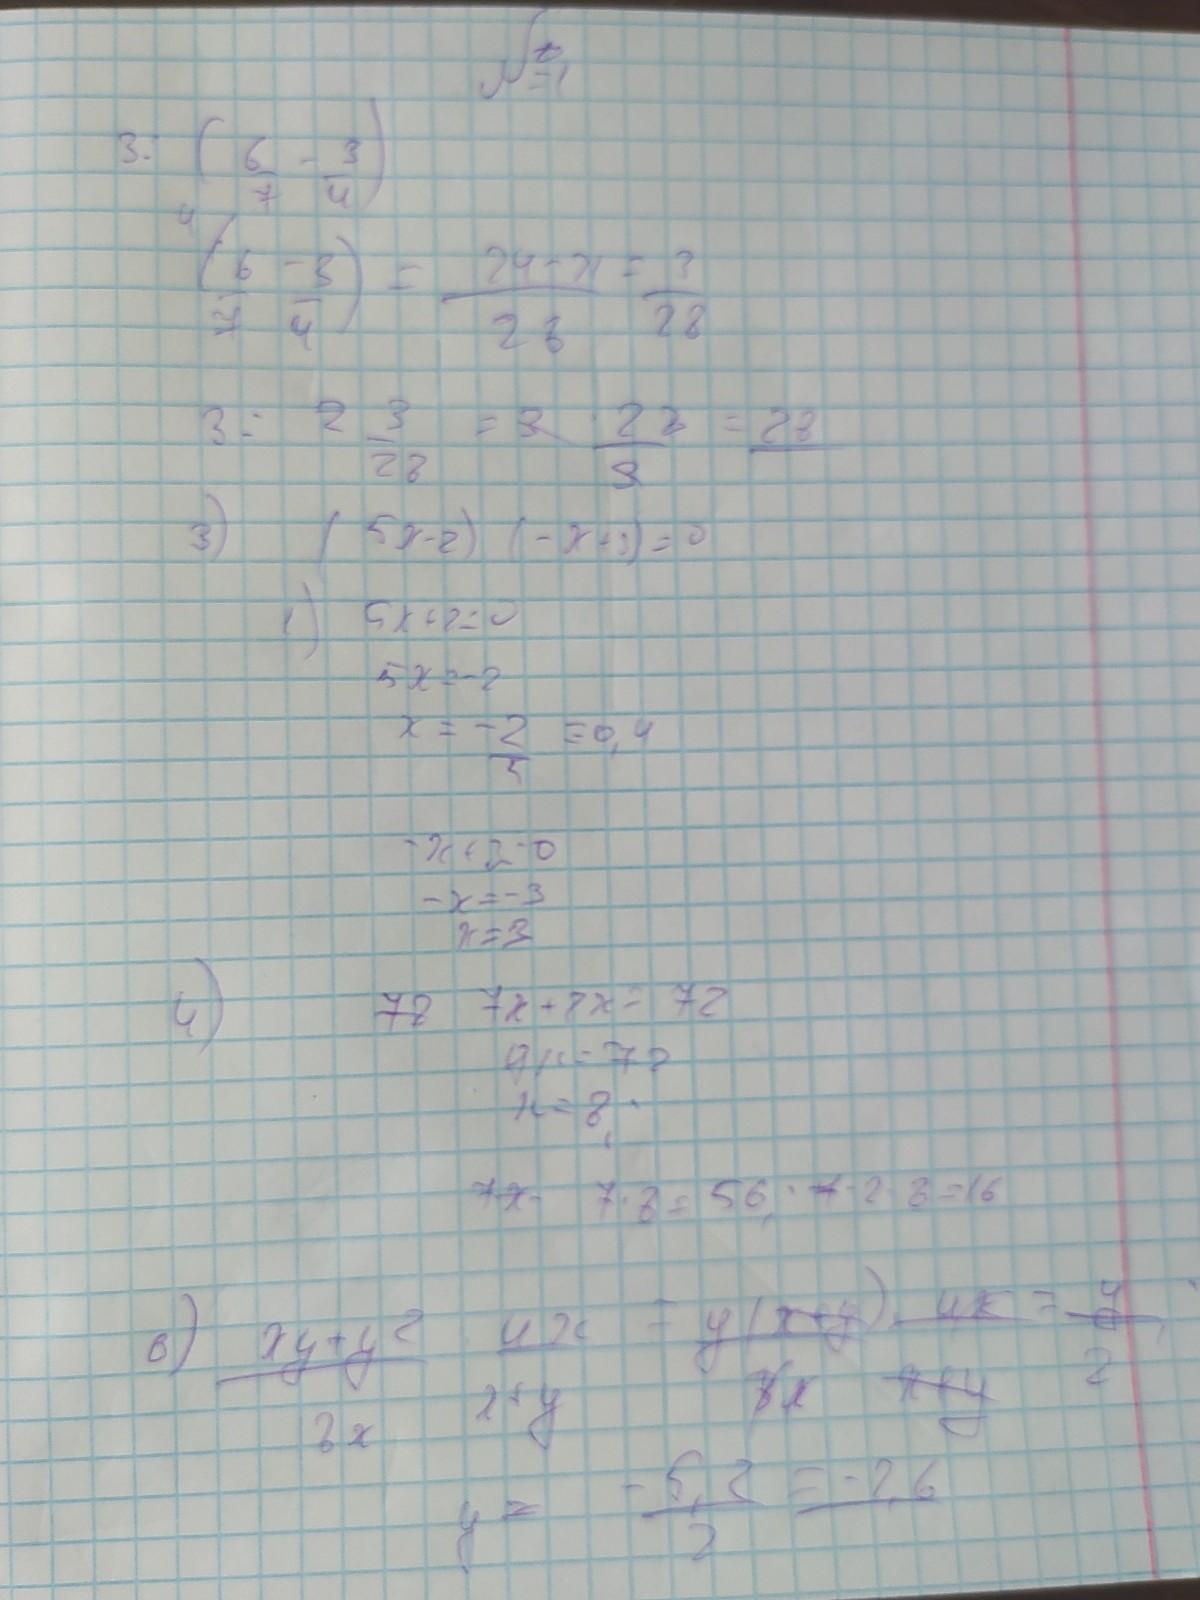 3: (6/7 - 3/4)
(6/7 - 3/4) = 24-21/28 = 3/28
3 : 3/28 = 3 · 28/3 = 28
3) (5x-2) (-x+3)=0
1) 5x+2=0
5x=-2
x = -2/5 =0,4
-x+3=0
-x=-3
x=3
4) 7x+2x= 72
9x=72
x=8
7x 7·8=56, 2·8=16
6) xy+y²/8x 4x/x+y = y(x+y)/8x · 4x/x+y = y/2
y = -5,2/2 = -2,6